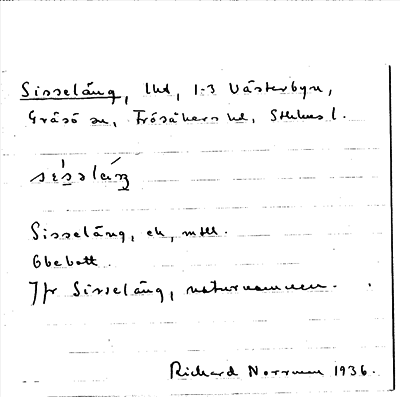 Sisseläng, lhd, 1-3 Västerbyn,
Gräsö sn, Frösåkers hd, Sthlms l.
Sisseläng, ek, mtl.
Obebott.
Jfr Sisseläng, naturnamnen.
Richard Norrman 1936.